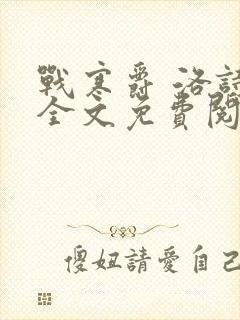 戰寒爵 洛詩
全文免費閱
傻妞請愛自己